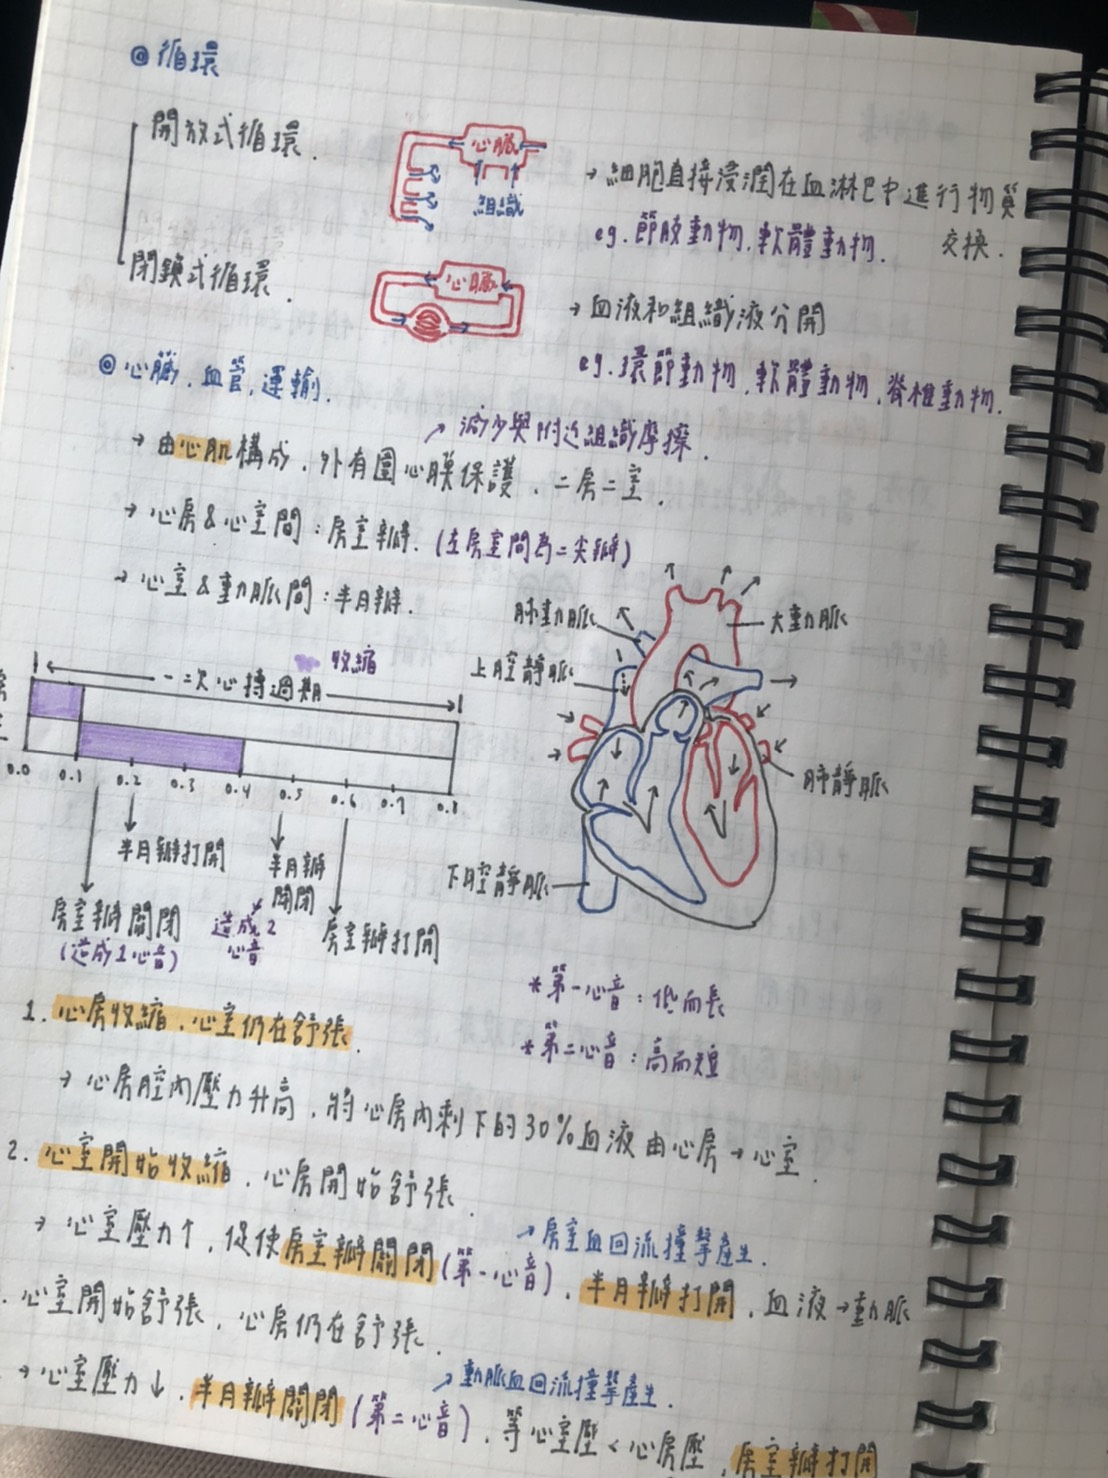 ◎循環
開放式循環.
心臟
組織
→細胞直接浸潤在血淋巴中進行物質
交換.
eg.節肢動物.軟體動物.
閉鎖式循環.
心臟
→血液和組織液分開
eg.環節動物.軟體動物.脊椎動物.
◎心臟.血管.運輸.
↗減少與附近組織摩擦.
→由心肌構成.外有圍心膜保護.二房二室.
→心房&心室間:房室瓣.(左房室間為二尖瓣)
→心室&動脈間:半月瓣.
收縮
一次心搏週期
0.0 0.1 0.2 0.3 0.4 0.5 0.6 0.7 0.8
半月瓣打開
半月瓣
關閉
房室瓣關閉
(造成1心音)
造成2
心音
房室瓣打開
肺動脈
大動脈
上腔靜脈
肺靜脈
下腔靜脈
*第一心音:低而長
*第二心音:高而短
1.心房收縮.心室仍在舒張.
→心房腔內壓力升高.將心房內剩下的30%血液由心房→心室.
2.心室開始收縮.心房開始舒張.
→房室血回流撞擊產生.
→心室壓力↑.促使房室瓣關閉(第一心音).半月瓣打開.血液→動脈
.心室開始舒張.心房仍在舒張.
↗動脈血回流撞擊產生.
→心室壓力↓.半月瓣關閉(第二心音).等心室壓<心房壓.房室瓣打開